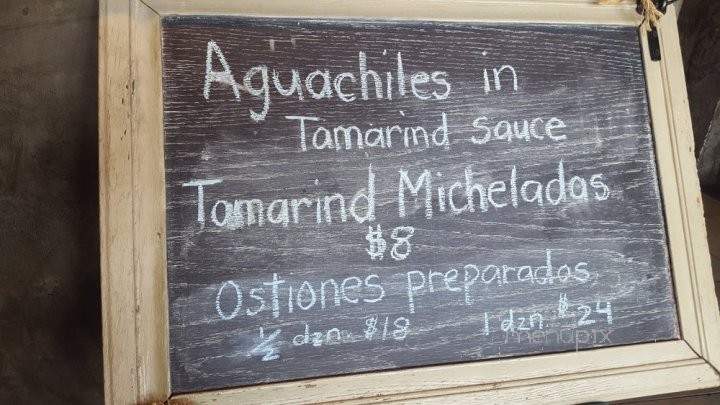 Aguachiles in
Tamarind sauce
Tamarind Micheladas
$8
Ostiones preparados
½ dzn. $18 1 dzn. $24
menupix